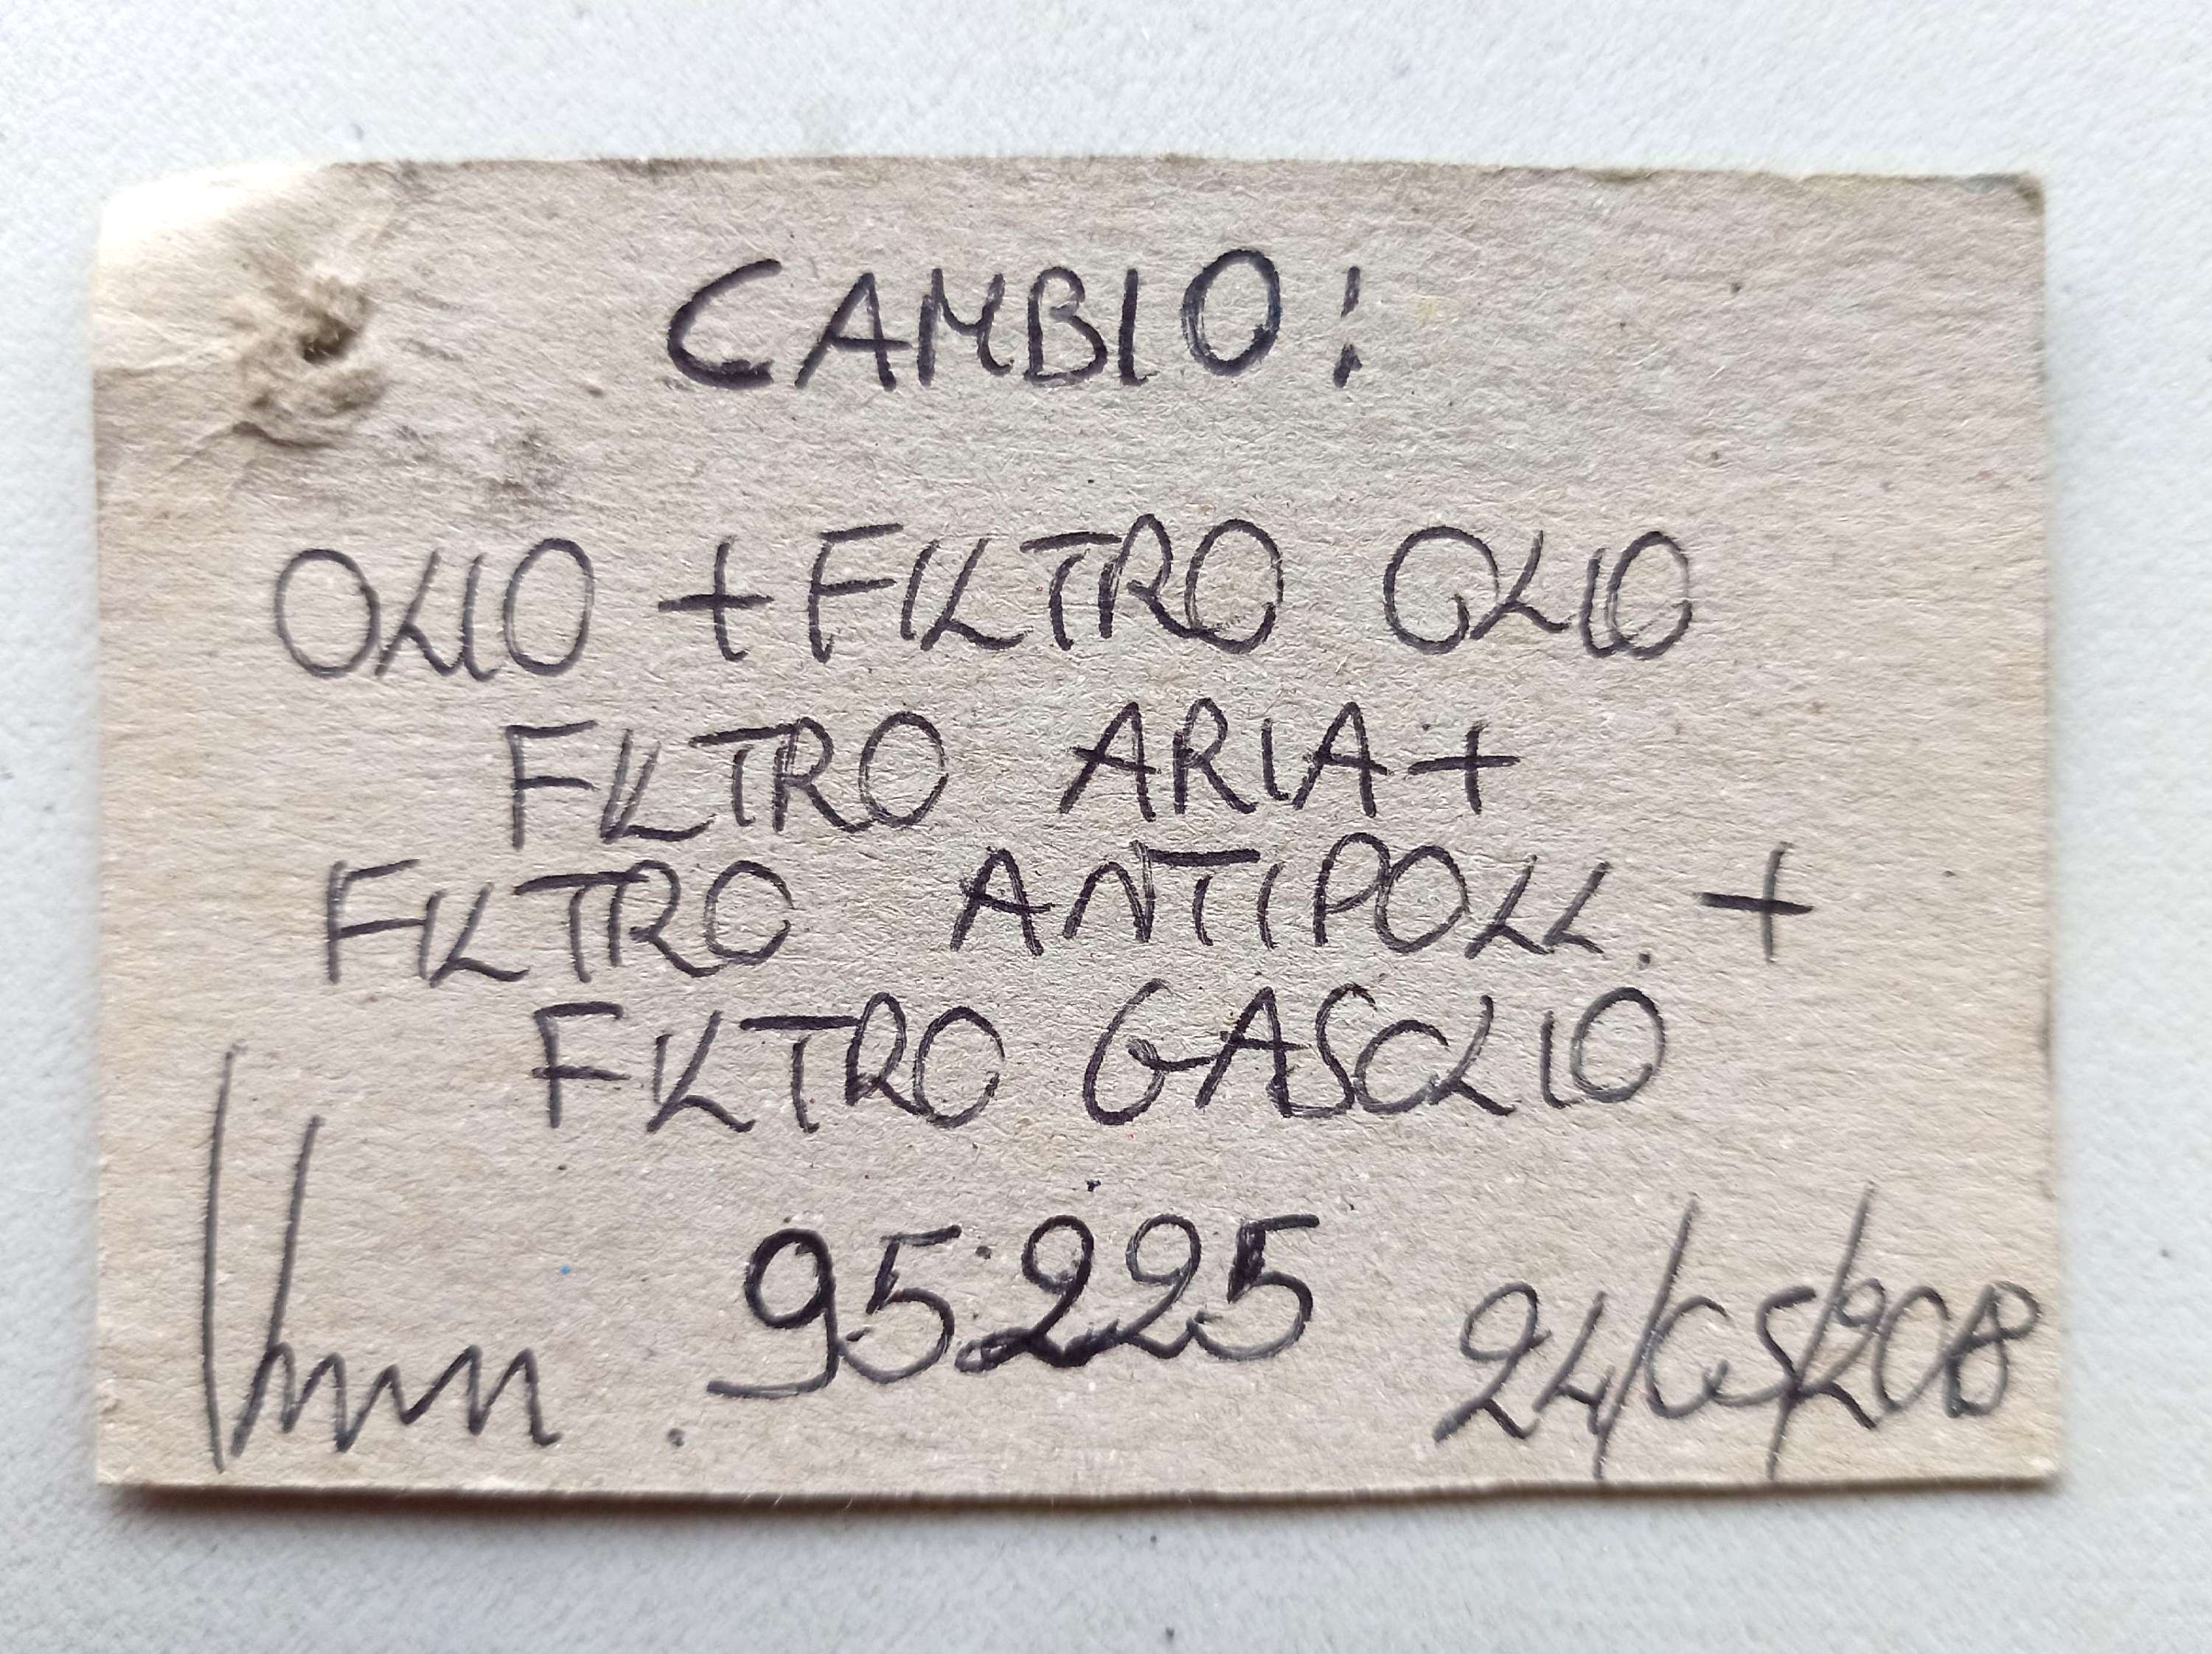 CAMBIO:
OLIO + FILTRO OLIO
FILTRO ARIA +
FILTRO ANTIPOLL. +
FILTRO GASOLIO
95.225
24/05/208